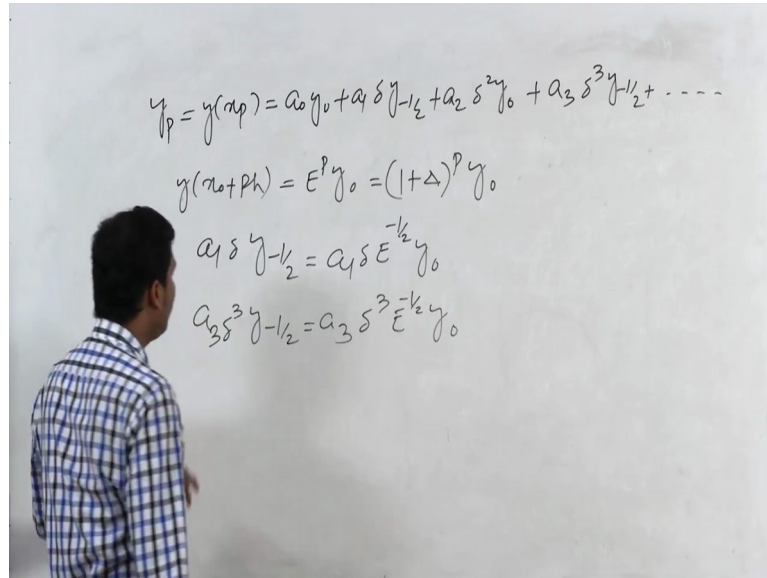 y_p = y(x_p) = a_0 y_0 + a_1 δ y_{-1/2} + a_2 δ^2 y_0 + a_3 δ^3 y_{-1/2} + ....
y(x_0+ph) = E^p y_0 = (1+Δ)^p y_0
a_1 δ y_{-1/2} = a_1 δ E^{-1/2} y_0
a_3 δ^3 y_{-1/2} = a_3 δ^3 E^{-1/2} y_0